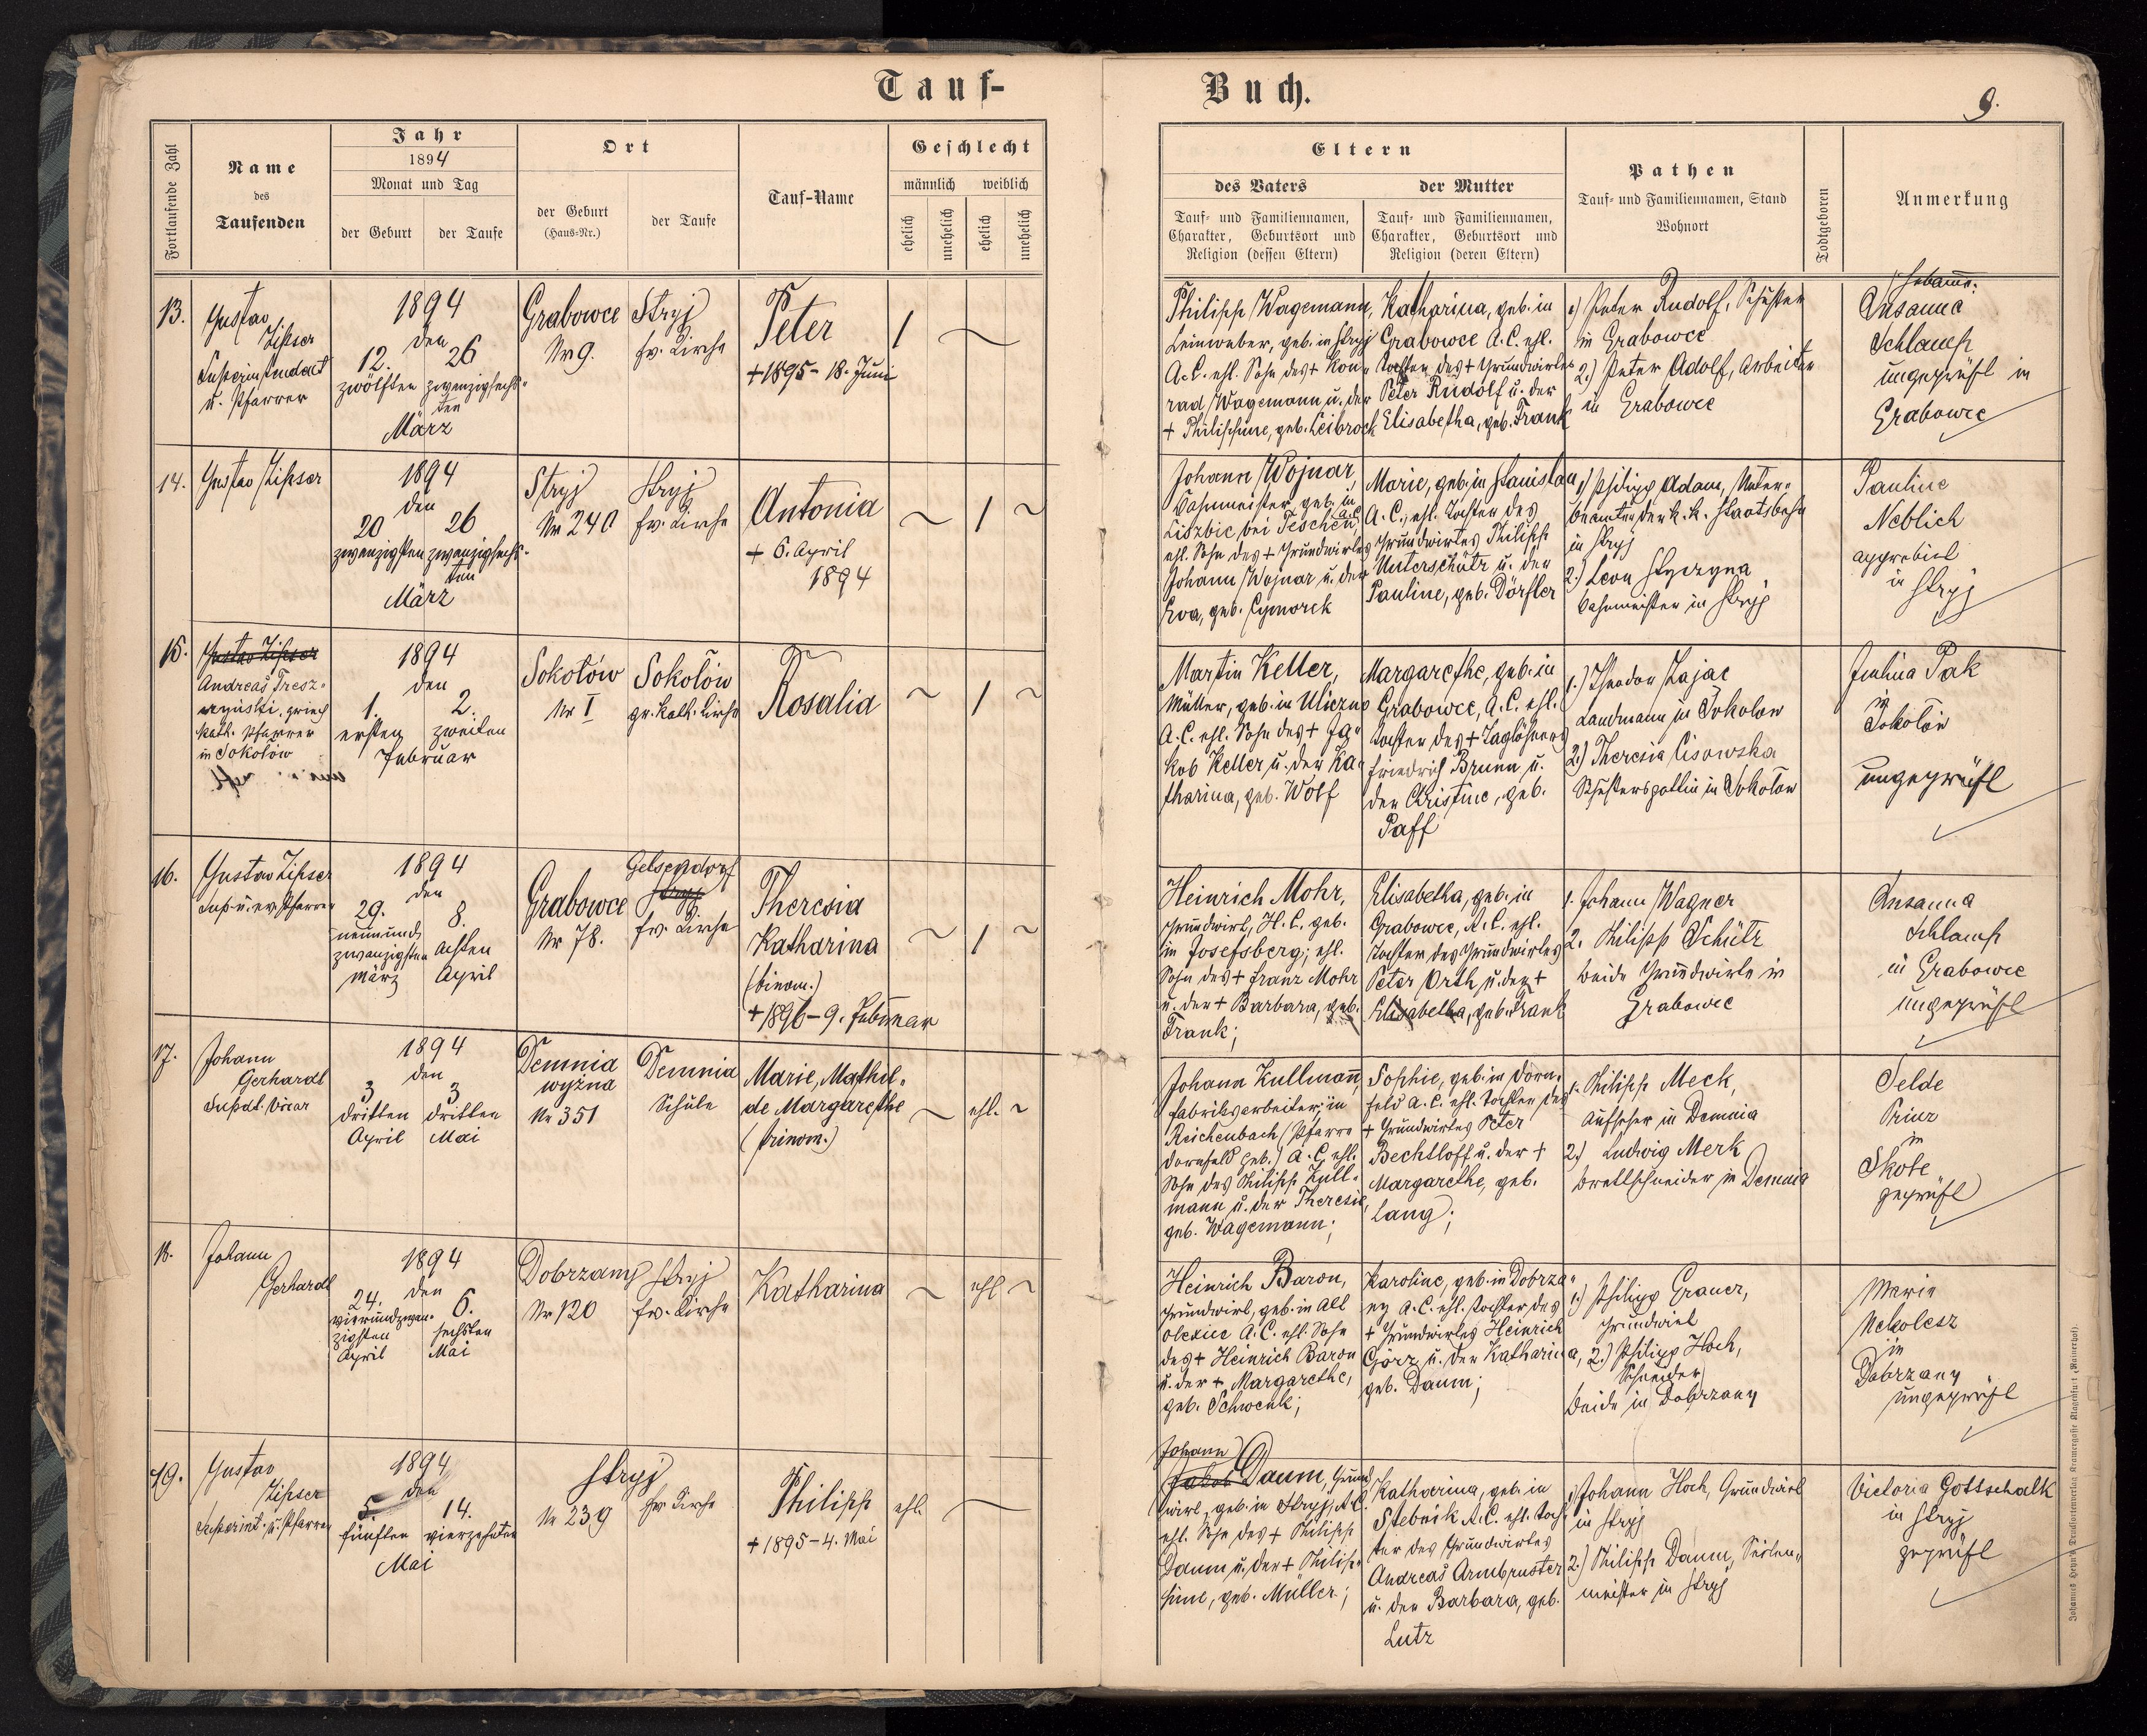 Tauf-
Buch.
9.
Fortlaufende Zahl
Name
des
Taufenden
Jahr
1894
Monat und Tag
der Geburt
der Taufe
Ort
der Geburt
(Haus-Nr.)
der Taufe
Tauf-Name
Geschlecht
männlich
weiblich
ehelich
unehelich
ehelich
unehelich
Eltern
des Vaters
Tauf- und Familiennamen,
Charakter, Geburtsort und
Religion (dessen Eltern)
der Mutter
Tauf- und Familiennamen,
Charakter, Geburtsort und
Religion (deren Eltern)
Pathen
Tauf- und Familiennamen, Stand
Wohnort
Todtgeboren
Anmerkung
13.
Gustav
Zipser
Superintendent
u. Pfarrer
1894
den
12. 26
zwölften zwanzigsechs-
ten
März
Grabowce
Nr 9.
Stryj
ev. Kirche
Peter
+ 1895 - 18. Juni
Philipp Wagemann,
Leinweber, geb. in Stryj
A.C. ehl. Sohn des + Kon-
rad Wagemann u. der
+ Philippine, geb. Leibrock
Katharina, geb. in
Grabowce A.C. ehl.
Tochter des + Grundwirtes
Peter Rudolf u. der
Elisabetha, geb. Frank
1.) Peter Rudolf, Schuster
in Grabowce
2.) Peter Adolf, Arbeiter
in Grabowce
Hebamme:
Susanna
Schlamp
ungeprüft in
Grabowce
14.
Gustav Zipser
1894
den
20 26
zwanzigsten zwanzigsechs-
ten
März
Stryj
Nr 240
Stryj
ev. Kirche
Antonia
+ 6. April
1894
Johann Wojnar,
Bahnmeister, geb. in
Liszbic bei Teschen, A.C.
ehl. Sohn des + Grundwirtes
Johann Wojnar u. der
Eva, geb. Cymorek
Marie, geb. in Stanislau
A.C., ehl. Tochter des
Grundwirtes Philipp
Unterschütz u. der
Pauline, geb. Dörfler
1.) Philipp Adam, Unter-
beamter der k.k. Staatsbahn
in Stryj
2.) Leon
Bahnmeister in Stryj
Pauline
Neblich
approbiert
in Stryj
15.
Gustav Zipser
Andreas Tresz-
griech
kath. Pfarrer
in Sokołów
1894
den
1. 2.
ersten zweiten
Februar
Sokołów
Nr I
Sokołów
gr. kath. Kirche
Rosalia
Martin Keller,
Müller, geb. in Uliczno
A.C. ehl. Sohn des + Ja-
kob Keller u. der Ka-
tharina, geb. Wolf
Margarethe, geb. in
Grabowce, A.C. ehl.
Tochter des + Taglöhners
Friedrich Brunn u.
der Christine, geb.
Paff
1.) Theodor Zajac
Landmann in Sokolow
2.) Theresia Cisowska
in Sokolow
Julina Pak
in
Sokolów
ungeprüft
16.
Gustav Zipser
Sup. u. ev. Pfarrer
1894
den
29. 8.
neunund achten
zwanzigsten
März April
Grabowce
Nr 78.
Gelsendorf
Stryj
ev. Kirche
Theresia
Katharina
(binom.)
+ 1896 - 9. Februar
Heinrich Mohr,
Grundwirt, H.C. geb.
in Josefsberg, ehl.
Sohn des + Franz Mohr
u. der + Barbara, geb.
Frank;
Elisabetha, geb. in
Grabowce, A.C. ehl.
Tochter des Grundwirtes
Peter Orth u. der +
Elisabetha, geb. Frank
1. Johann Wagner
2. Philipp Schütz
beide Grundwirte in
Grabowce
Susanna
Schlamp
in Grabowce
ungeprüft
17.
Johann
Gerhardt
Supdt. Vicar
1894
den
3 3
dritten dritten
April Mai
Demnia
wyżna
Nr 351
Demnia
Schule
Marie, Mathil-
de Margarethe
(trinom.)
ehl.
Johann Kullmann,
Fabriksarbeiter, in
Reichenbach (Pfarre
Dornfeld geb.) A.C. ehl.
Sohn des Philipp Kull-
mann u. der Theresie,
geb. Wagemann;
Sophie, geb. in Dorn-
feld A.C. ehl. Tochter des
+ Grundwirtes Peter
Bechtloff u. der +
Margarethe, geb.
Lang;
1. Philipp Meck,
Aufseher in Demnia
2.) Ludwig Merk
Brettschneider in Demnia
Selde
Prinz
in
Skole
geprüft
18.
Johann
Gerhardt
1894
den
24. 6.
vierundzwan-
zigsten sechsten
April Mai
Dobrzany
Nr 120
Stryj
ev. Kirche
Katharina
ehl.
Heinrich Baron,
Grundwirt, geb. in Alt
A.C. ehl. Sohn
des + Heinrich Baron
u. der + Margarethe,
geb. Schwenk;
Karoline, geb. in Dobrza-
ny A.C. ehl. Tochter des
+ Grundwirtes Heinrich
Görz u. der Katharina,
geb. Daum;
1.) Philipp Grauer,
Grundwirt
2.) Philipp Hoch,
Schneider
beide in Dobrzany
Marie
Mekolesz
in
Dobrzany
ungeprüft
19.
Gustav
Zipser
Superint. u. Pfarrer
1894
den
5. 14.
fünften vierzehnten
Mai
Stryj
Nr 239
ev. Kirche
Philipp
+ 1895 - 4. Mai
ehl.
Johann
Jakob Daum, Grund
wirt, geb. in Stryj, A.C.
ehl. Sohn des + Philipp
Daum u. der + Philip-
pine, geb. Müller;
Katharina, geb. in
Stebnik A.C. ehl. Toch-
ter des Grundwirtes
Andreas Armbruster
u. der Barbara, geb.
Lutz
1.) Johann Hoch, Grundwirt
in Stryj
2.) Philipp Daum, Seiler-
meister in Stryj
Victoria Gottschalk
in Stryj
geprüft